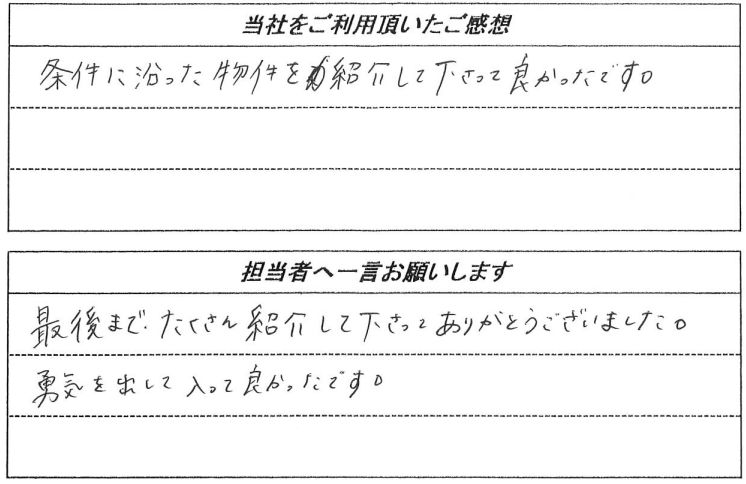 当社をご利用頂いたご感想
条件に沿った物件を紹介して下さって良かったです。
担当者へ一言お願いします
最後まで、たくさん紹介して下さってありがとうございました。
勇気を出して入って良かったです。